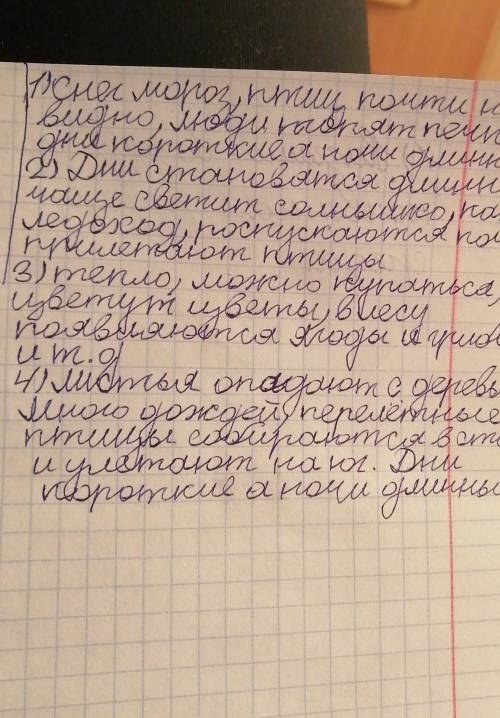 1) Снег мороз, птиц почти н
видно, люди топят печи
дни короткие а ночи длинн
2) Дни становятся длинн
чаще светит солнышко, на
ледоход, роспускаются поч
прилетают птицы
3) тепло, можно купаться,
цветут цветы, в лесу
появляются ягоды и грибы
и т.д
4) листья опадают с деревь
много дождей, перелётные
птицы собираются в ст
и улетают на юг. Дни
короткие а ночи длинны